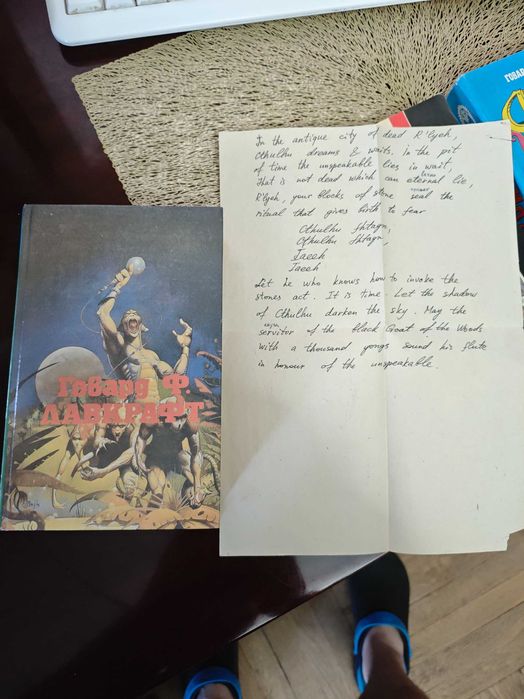 ГОВАР
Говард Ф.
ЛАВКРАФТ
In the antique city of dead R'lyeh,
Cthulhu dreams & waits. In the pit
of time the unspeakable lies in wait,
that is not dead which can eternal lie,
R'lyeh, your blocks of stone seal the
ritual that gives birth to fear
Cthulhu fhtagn,
Cthulhu fhtagn,
Iaeeh
Iaeeh
Let he who knows how to invoke the
stones act. It is time. Let the shadow
of Cthulhu darken the sky. May the
servitor of the Black Goat of the Woods
with a thousand yongs sound his flute
in honour of the unspeakable.